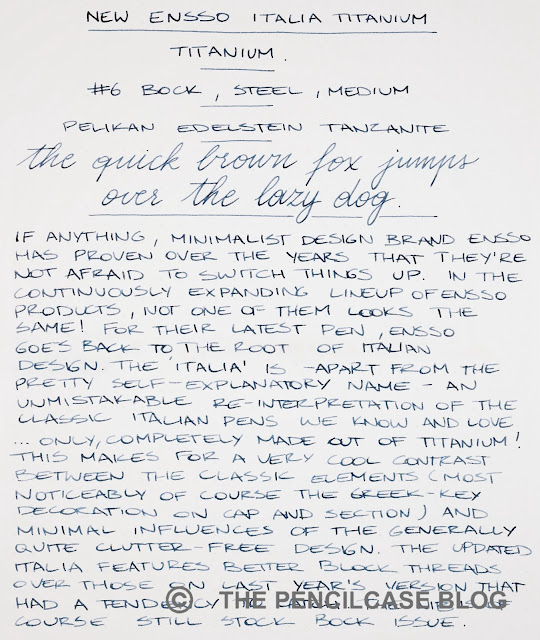 NEW ENSSO ITALIA TITANIUM
TITANIUM.
#6 BOCK, STEEL, MEDIUM
PELIKAN EDELSTEIN TANZANITE
the quick brown fox jumps
over the lazy dog.
IF ANYTHING, MINIMALIST DESIGN BRAND ENSSO
HAS PROVEN OVER THE YEARS THAT THEY'RE
NOT AFRAID TO SWITCH THINGS UP. IN THE
CONTINUOUSLY EXPANDING LINEUP OF ENSSO
PRODUCTS, NOT ONE OF THEM LOOKS THE
SAME! FOR THEIR LATEST PEN, ENSSO
GOES BACK TO THE ROOT OF ITALIAN
DESIGN. THE 'ITALIA' IS -APART FROM THE
PRETTY SELF-EXPLANATORY NAME - AN
UNMISTAKABLE RE-INTERPRETATION OF THE
CLASSIC ITALIAN PENS WE KNOW AND LOVE
... ONLY, COMPLETELY MADE OUT OF TITANIUM!
THIS MAKES FOR A VERY COOL CONTRAST
BETWEEN THE CLASSIC ELEMENTS (MOST
NOTICEABLY OF COURSE THE GREEK-KEY
DECORATION ON CAP AND SECTION) AND
MINIMAL INFLUENCES OF THE GENERALLY
QUITE CLUTTER-FREE DESIGN. THE UPDATED
ITALIA FEATURES BETTER BLOCK THREADS
OVER THOSE ON LAST YEAR'S VERSION THAT
HAD A TENDENCY TO
© THE PENCILCASE BLOG
COURSE STILL STOCK BOCK ISSUE.